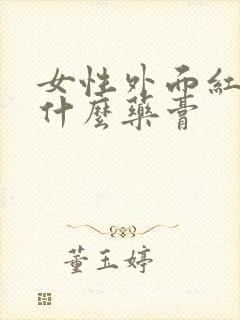 女性外而紅
什麼藥膏
董玉婷